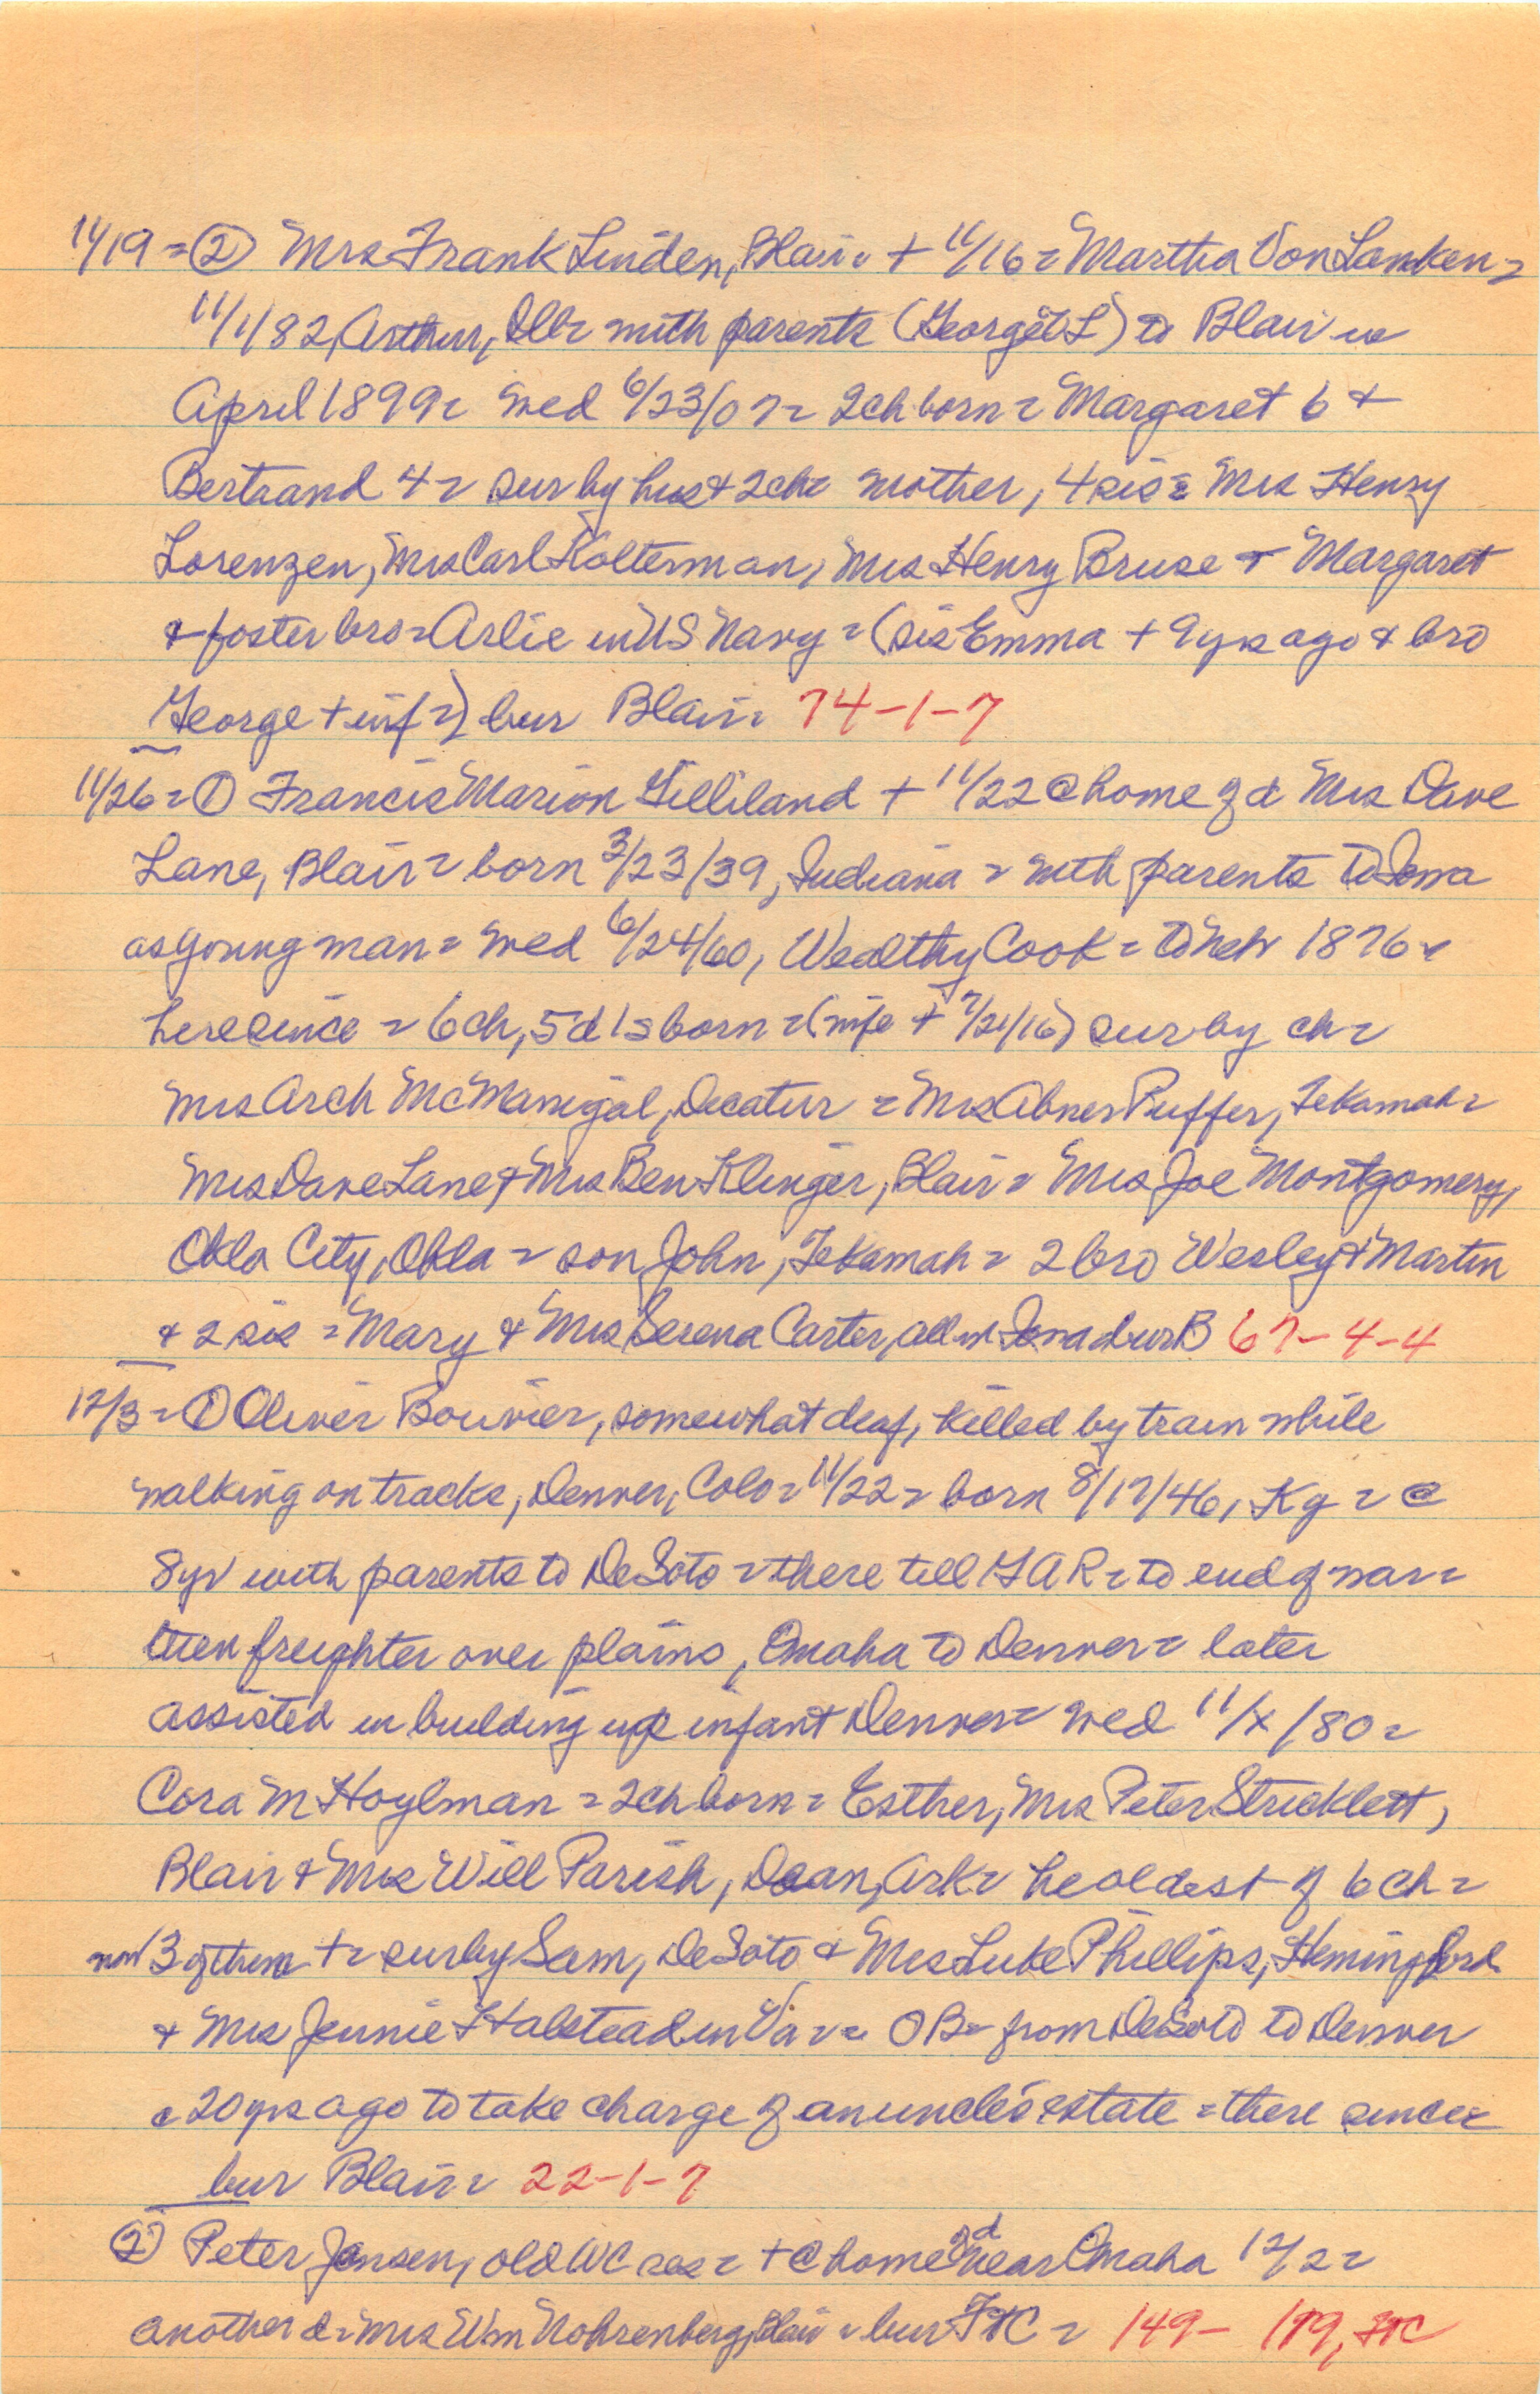 11/19 = ② Mrs Frank Linden, Blair = + 11/16 = Martha Von Lanken =
11/1/82, Arthur, Ill = with parents (George VL) to Blair in
April 1899 = wed 6/23/07 = 2 ch born = Margaret 6 &
Bertrand 4 = sur by hus & 2 ch = mother, 4 sis = Mrs Henry
Lorenzen, Mrs Carl Kolterman, Mrs Henry Bruse & Margaret
& foster bro = Arlie in US Navy = (sis Emma + 9 yrs ago & bro
George + inf =) bur Blair = 74-1-7
11/26 = ① Francis Marion Gilliland + 11/22 @ home of d Mrs Dave
Lane, Blair = born 3/23/39, Indiana = with parents to Iowa
as young man = wed 6/24/60, Wealthy Cook = to Neb 1876 =
here since = 6 ch, 5 d 1 s born = (wife + 7/21/16) sur by ch =
Mrs Arch McManigal, Decatur = Mrs Abner Puffer, Tekamah =
Mrs Dave Lane & Mrs Ben Klinger, Blair = Mrs Joe Montgomery,
Okla City, Okla = son John, Tekamah = 2 bro Wesley & Martin
& 2 sis = Mary & Mrs Serena Carter, all in Iowa bur B 67-4-4
12/3 = ① Oliver Bouvier, somewhat deaf, killed by train while
walking on tracks, Denver, Colo = 11/22 = born 8/17/46, Ky = @
8 yr with parents to DeSoto = there till GAR = to end of war =
then freighter over plains, Omaha to Denver = later
assisted in building up infant Denver = wed 11/x/80 =
Cora M Hoylman = 2 ch born = Esther, Mrs Peter Stricklett,
Blair & Mrs Will Parish, Dean, Ark = he oldest of 6 ch =
now 3 of them + = sur by Sam, DeSoto & Mrs Luke Phillips, Hemingford
& Mrs Jennie Halstead in Va = = OB = from DeSoto to Denver
c 20 yrs ago to take charge of an uncle's estate = there since =
bur Blair = 22-1-7
② Peter Jensen, old WC res = + @ home of d near Omaha 12/2 =
another d = Mrs Wm Nohrenberg, Blair = bur FtC = 149- 179, FtC